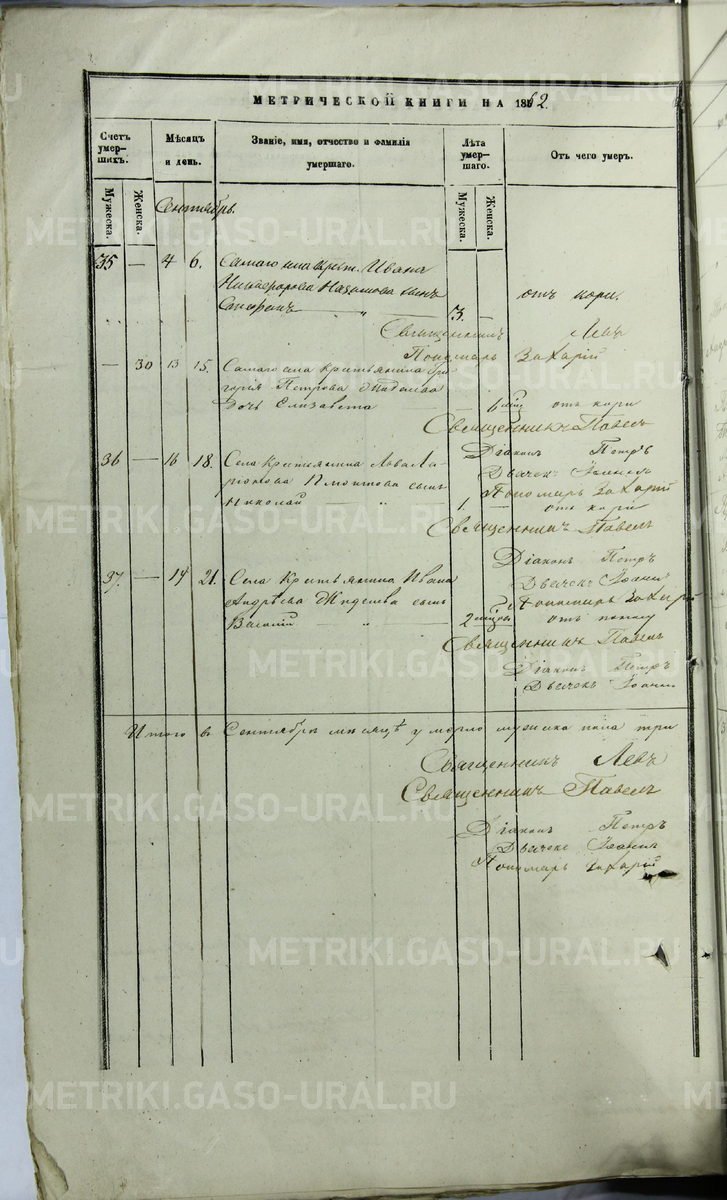 МЕТРИЧЕСКОЙ КНИГИ НА 1862.
Счет умер-шихъ.
Мѣсяцъ и день.
Званіе, имя, отчество и фамилія умершаго.
Лѣта умер-шаго.
Отъ чего умеръ.
Мужеска.
Женска.
Мужеска.
Женска.
Сентябрь.
35 — 4 6. Самаго села Крест. Ивана
сынъ отъ кори.
3. —
Священникъ Левъ
Пономарь Захарій
— 30 13 15. Самаго села крестьянина Гри-
горія Петрова
Дочь Елизавета — 6 отъ кори
Священникъ Павелъ
Діаконъ Петръ
36 — 16 18. Села крестьянина Ла-
Дьячекъ Іоаннъ
сынъ
Пономарь Захарій
Николай " 1. — отъ кори
Священникъ Павелъ
Діаконъ Петръ
37. — 14 21. Села Крестьянина Ивана
Дьячекъ Іоаннъ
Андрѣева сынъ
Пономарь Захарій
2 отъ
Священникъ Павелъ
Діаконъ Петръ
Дьячекъ Іоаннъ
Итого въ Сентябрѣ мѣсяцѣ умерло мужска пола три
Священникъ Левъ
Священникъ Павелъ
Діаконъ Петръ
Дьячекъ Іоаннъ
Пономарь Захарій
METRIKI.GASO-URAL.RU